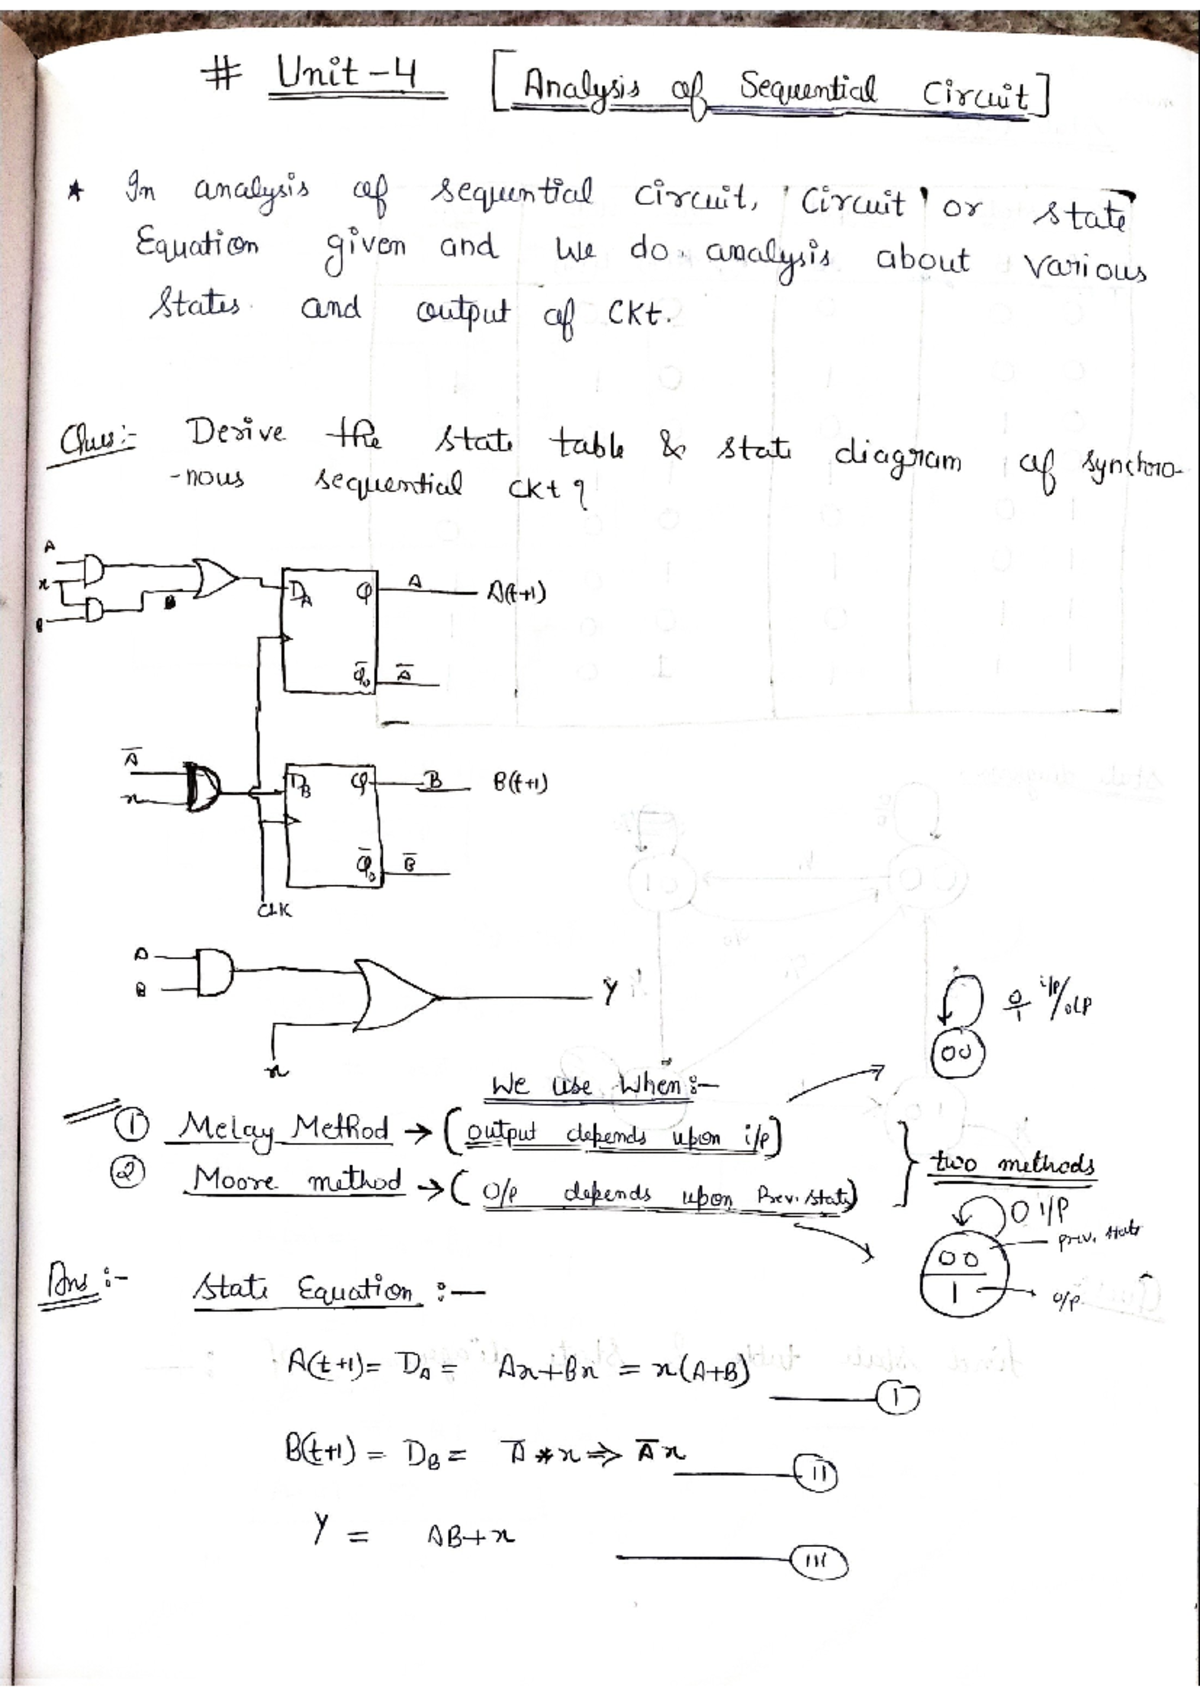 # Unit-4 [Analysis of Sequential Circuit]
* In analysis of sequential circuit, 'Circuit' or state
Equation given and we do analysis about various
states and output of CKt.
Ques:- Derive the state table & state diagram of synchro-
-nous sequential ckt?
A
x
B
B
D_A Q A A(t+1)
Q̅ A̅
A̅
x
D_B Q B B(t+1)
Q̅ B̅
CLK
A
B
Y
x
0/1 i/p/o/p
00
We use When:-
① Melay Method → (output depends upon i/p)
② Moore method → (O/p depends upon Prev. state)
two methods
0 i/P
00
prev. state
1
o/p.
Ans:- State Equation :—
A(t+1) = D_A = Ax+Bx = x(A+B) — I
B(t+1) = D_B = A̅ * x ⇒ A̅x — II
Y = AB+x — III